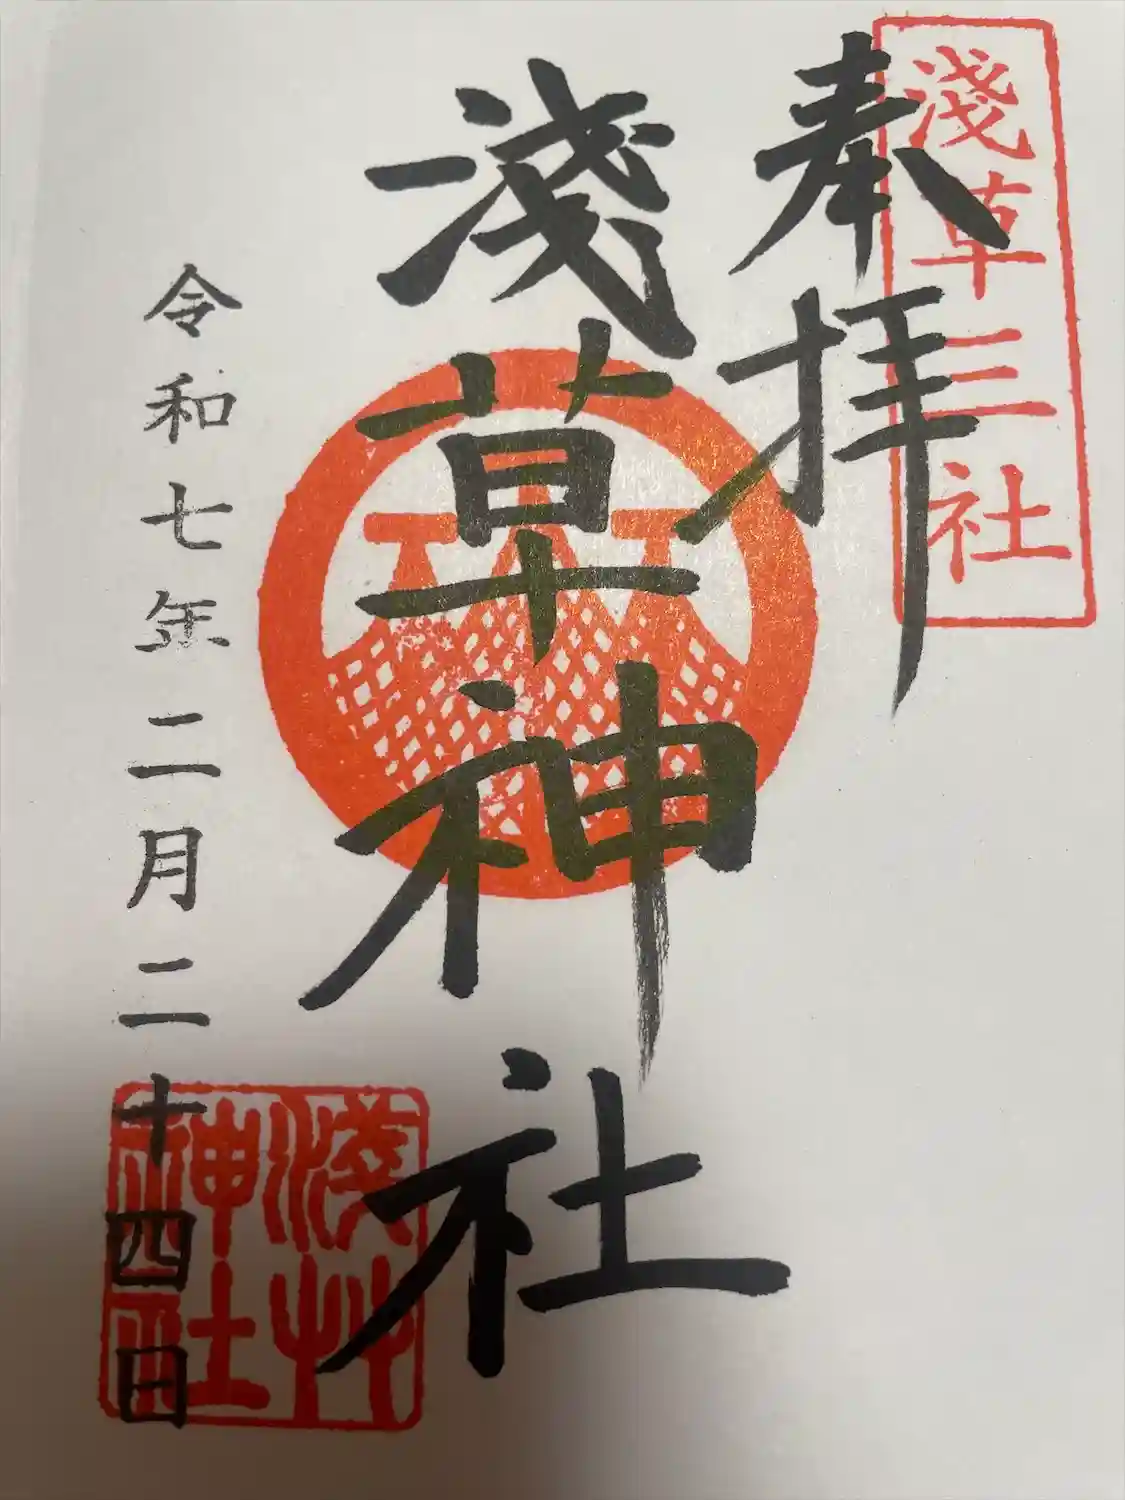 淺草三社
奉拝
淺草神社
令和七年二月二十四日
淺艸神社